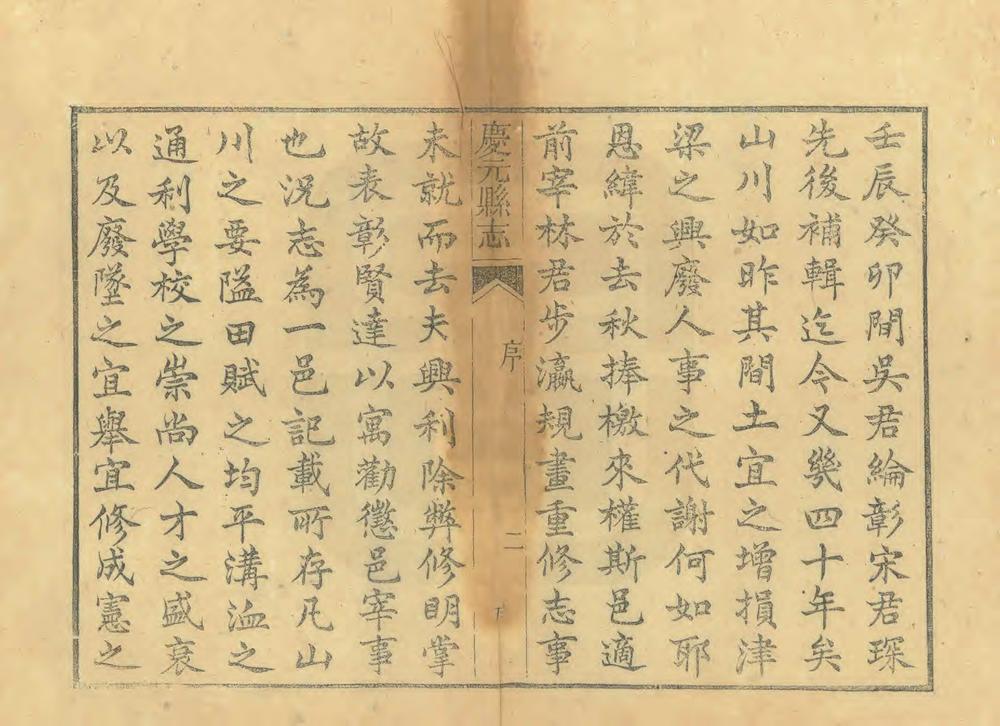 壬辰癸卯間吳君綸彰宋君琛
先後補輯迄今又幾四十年矣
山川如昨其間土宜之增損津
梁之興廢人事之代謝何如耶
恩緯於去秋捧檄來權斯邑適
前宰林君步瀛規畫重修志事
慶元縣志
序
二
未就而去夫興利除弊修明掌
故表彰賢達以寓勸懲邑宰事
也況志為一邑記載所存凡山
川之要隘田賦之均平溝洫之
通利學校之崇尚人才之盛衰
以及廢墜之宜舉宜修成憲之